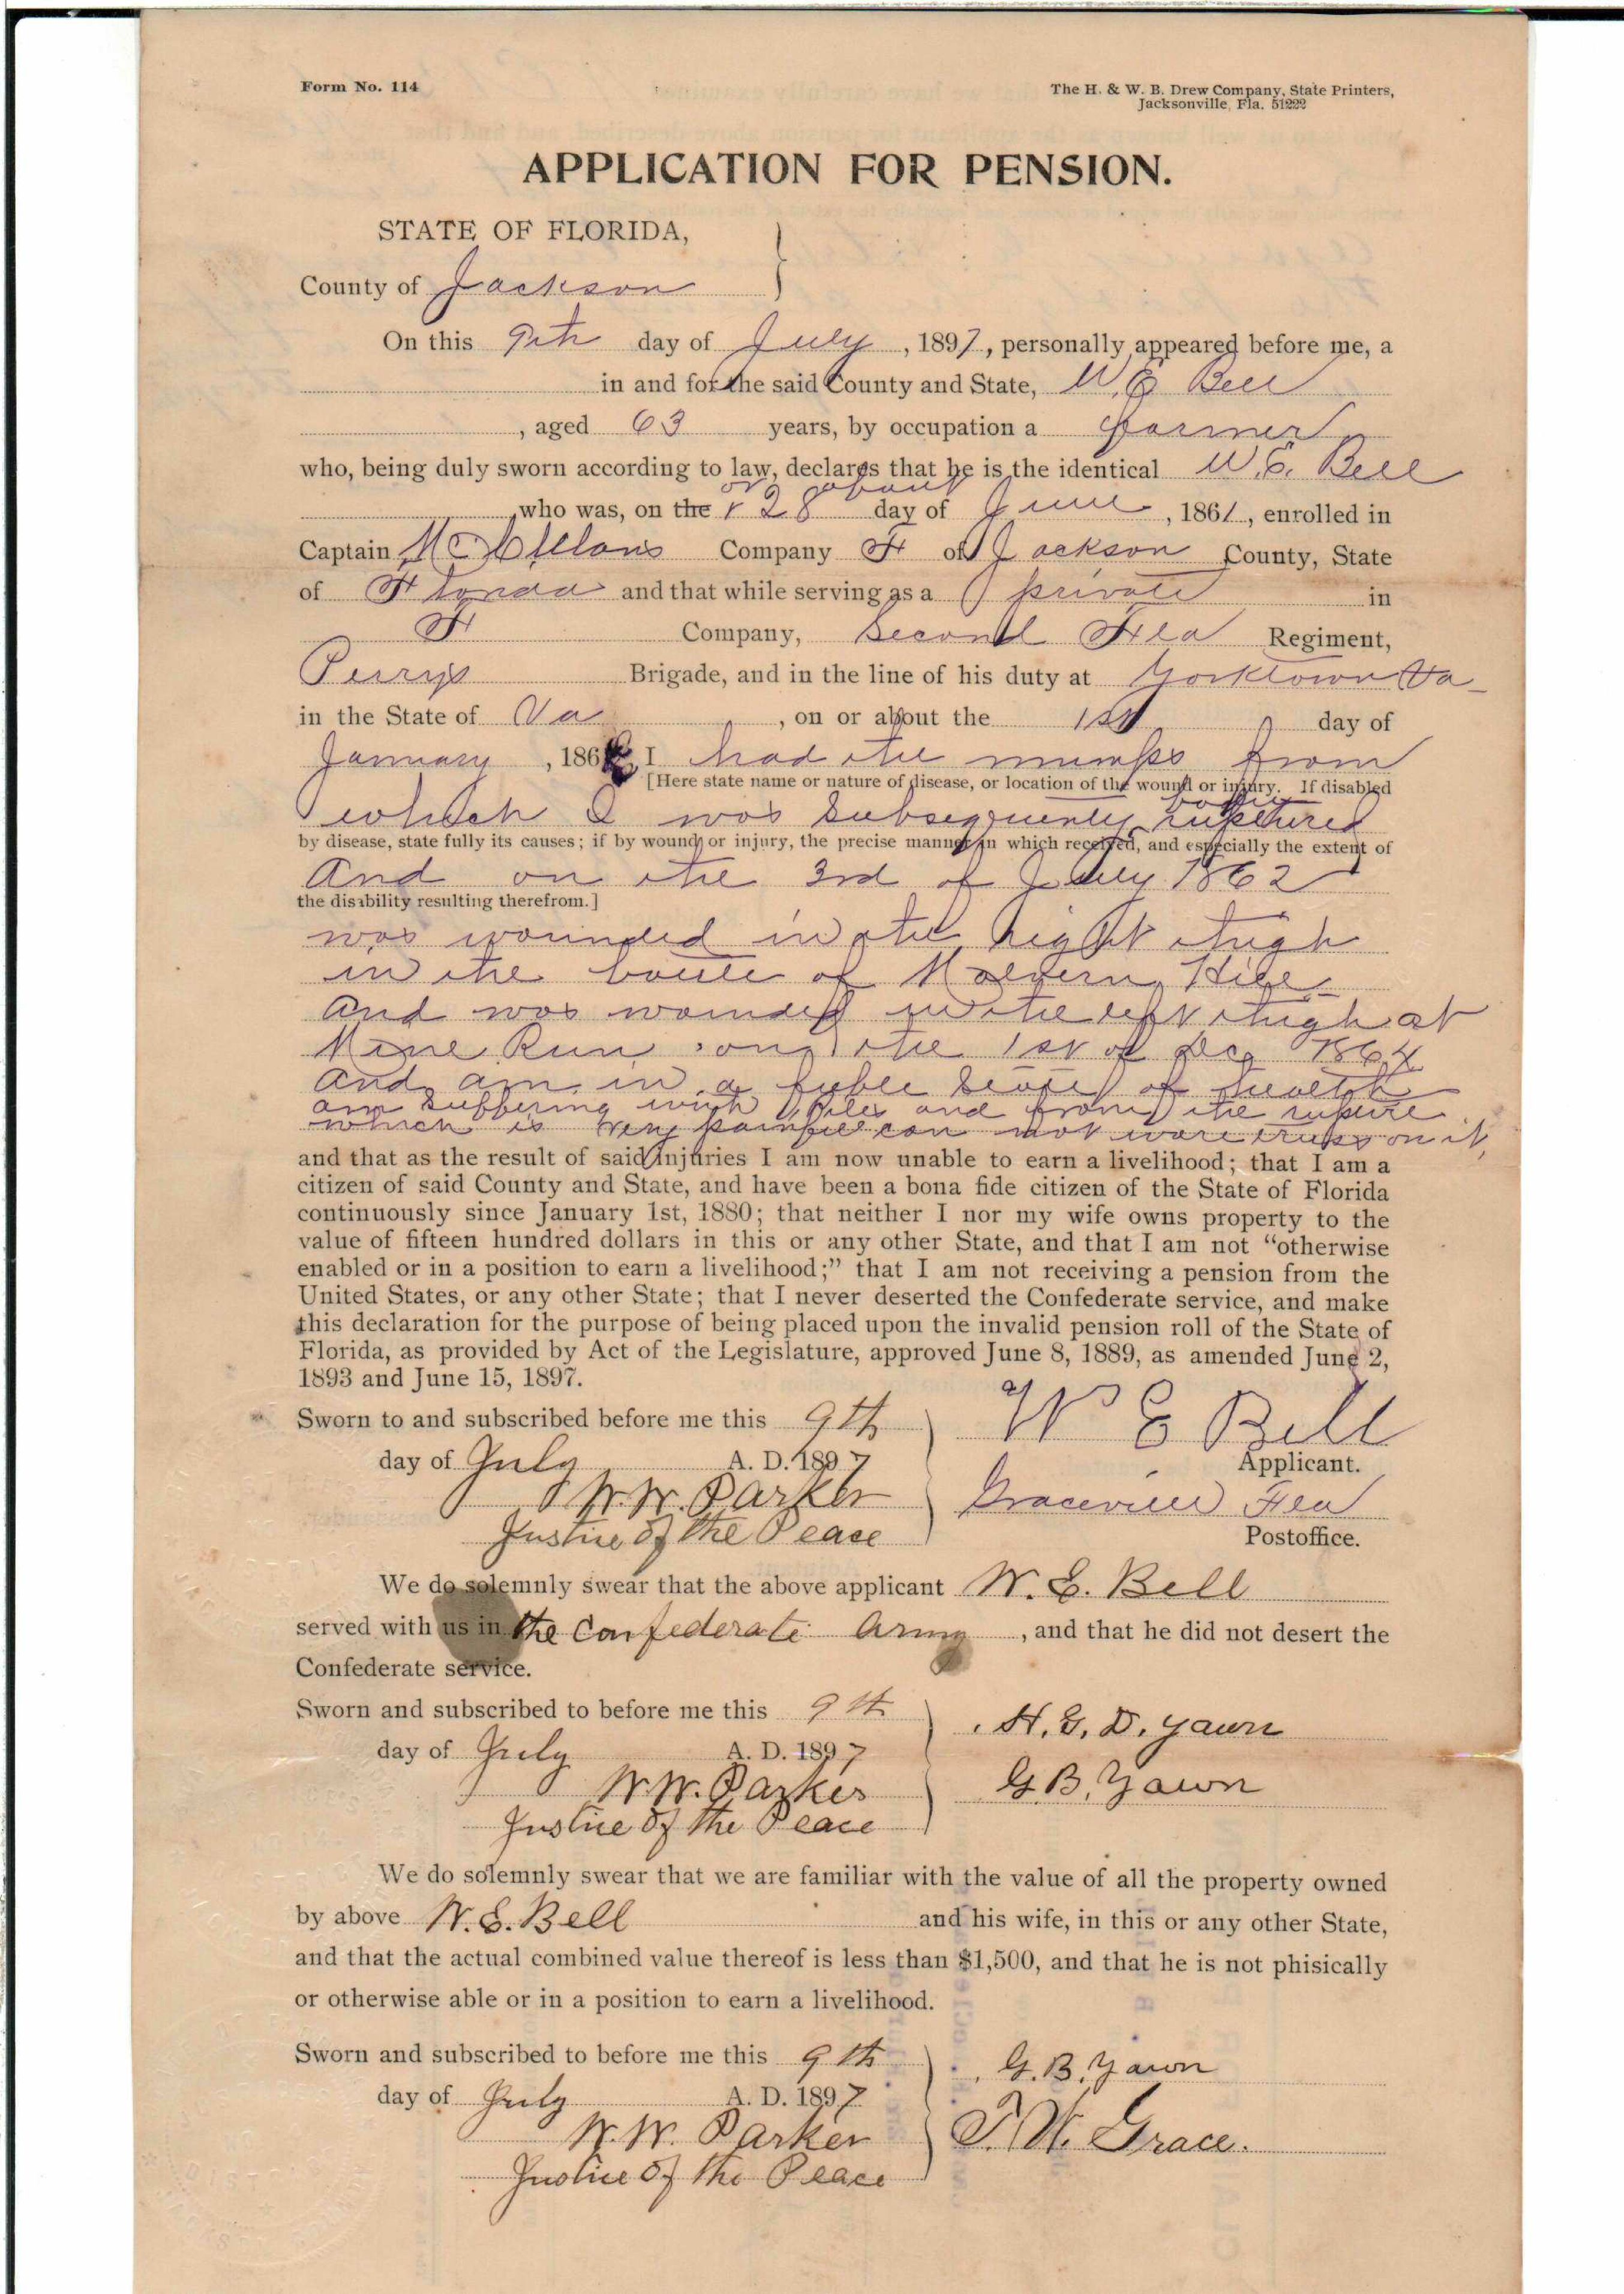 Form No. 114
The H. & W. B. Drew Company, State Printers,
Jacksonville, Fla. 51222
APPLICATION FOR PENSION.
STATE OF FLORIDA,
County of Jackson
On this 9th day of July, 1897, personally appeared before me, a
in and for the said County and State, W. E Bell
, aged 63 years, by occupation a farmer
who, being duly sworn according to law, declares that he is the identical W. E. Bell
or about
who was, on the 28 day of June, 1861, enrolled in
Captain McClellans Company F of Jackson County, State
of Florida and that while serving as a private in
F Company, Second Fla Regiment,
Perrys Brigade, and in the line of his duty at Yorktown Va
in the State of Va, on or about the 1st day of
January, 186 I had the mumps from
[Here state name or nature of disease, or location of the wound or injury. If disabled
which I was subsequently ruptured
by disease, state fully its causes; if by wound or injury, the precise manner in which received, and especially the extent of
And on the 3rd of July 1862
the disability resulting therefrom.]
was wounded in the right thigh
in the battle of Malvern Hill
and was wounded in the left thigh at
Mine Run on the 1st of Dec 1864
and am in a feeble state of health
am suffering with Piles and from the rupture
which is very painful can not ware truss on it,
and that as the result of said injuries I am now unable to earn a livelihood; that I am a
citizen of said County and State, and have been a bona fide citizen of the State of Florida
continuously since January 1st, 1880; that neither I nor my wife owns property to the
value of fifteen hundred dollars in this or any other State, and that I am not “otherwise
enabled or in a position to earn a livelihood;” that I am not receiving a pension from the
United States, or any other State; that I never deserted the Confederate service, and make
this declaration for the purpose of being placed upon the invalid pension roll of the State of
Florida, as provided by Act of the Legislature, approved June 8, 1889, as amended June 2,
1893 and June 15, 1897.
Sworn to and subscribed before me this 9th
W E Bell
day of July A. D. 1897
Applicant.
W. W. Parker
Graceville Fla
Justice of the Peace
Postoffice.
We do solemnly swear that the above applicant W. E. Bell
served with us in the Confederate Army, and that he did not desert the
Confederate service.
Sworn and subscribed to before me this 9th
H. G. D. Yawn
day of July A. D. 1897
W. W. Parker
G. B. Yawn
Justice of the Peace
We do solemnly swear that we are familiar with the value of all the property owned
by above W. E. Bell and his wife, in this or any other State,
and that the actual combined value thereof is less than $1,500, and that he is not phisically
or otherwise able or in a position to earn a livelihood.
Sworn and subscribed to before me this 9th
G. B. Yawn
day of July A. D. 1897
W. W. Parker
T. W. Grace.
Justice of the Peace